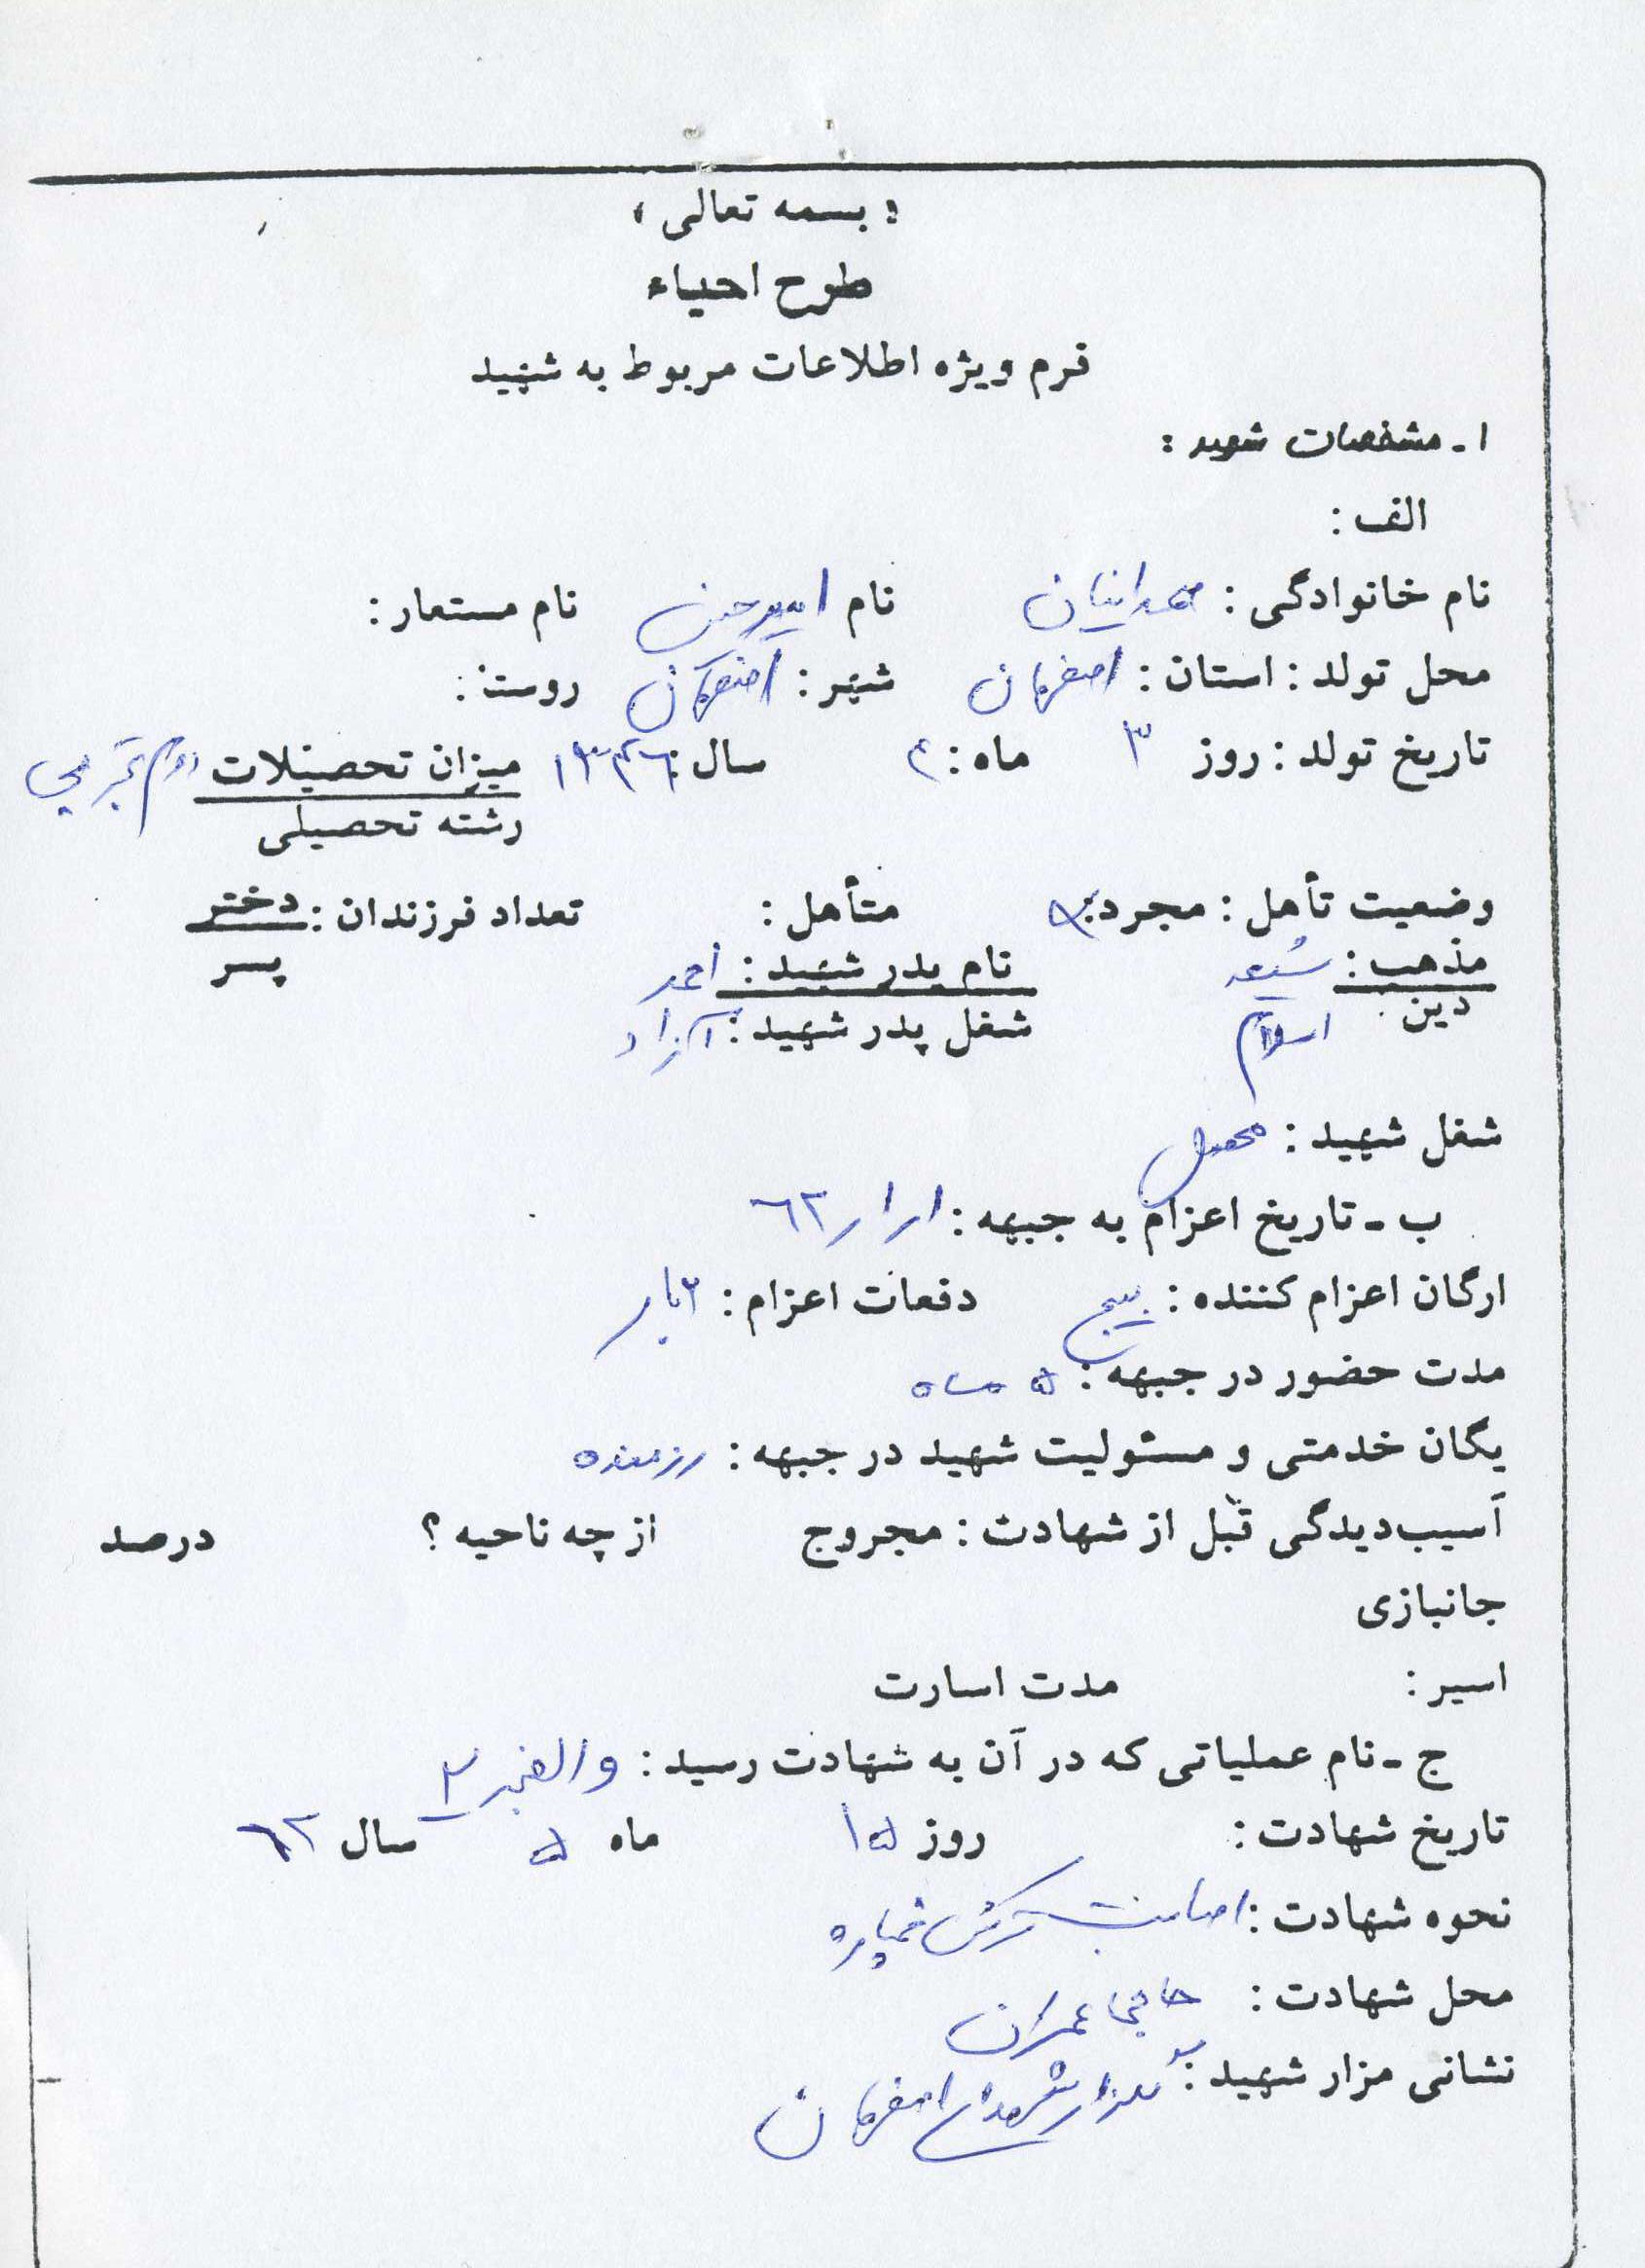 « بسمه تعالی »
طرح احیاء
فرم ویژه اطلاعات مربوط به شهید
۱- مشخصات شهید :
الف :
نام خانوادگی : همدانیان نام امیرحسن نام مستعار :
محل تولد : استان : اصفهان شهر : اصفهان روستا :
تاریخ تولد : روز ۳ ماه : ۴ سال : ۱۳۴۶ میزان تحصیلات دوم تجربی
رشته تحصیلی
وضعیت تأهل : مجرد : متأهل : تعداد فرزندان : دختر
پسر
مذهب : شیعه نام پدر شهید : احمد
دین : اسلام شغل پدر شهید : آزاد
شغل شهید : محصل
ب - تاریخ اعزام به جبهه : ۱ر۱ر۶۲
ارگان اعزام کننده : بسیج دفعات اعزام : ۲ بار
مدت حضور در جبهه : ۵ ماه
یگان خدمتی و مسئولیت شهید در جبهه : رزمنده
آسیب‌دیدگی قبل از شهادت : مجروح از چه ناحیه ؟ درصد
جانبازی
اسیر : مدت اسارت
ج - نام عملیاتی که در آن به شهادت رسید : والفجر ۲
تاریخ شهادت : روز ۱۵ ماه ۵ سال ۶۲
نحوه شهادت : اصابت ترکش خمپاره
محل شهادت : حاجی عمران
نشانی مزار شهید : گلزار شهدای اصفهان